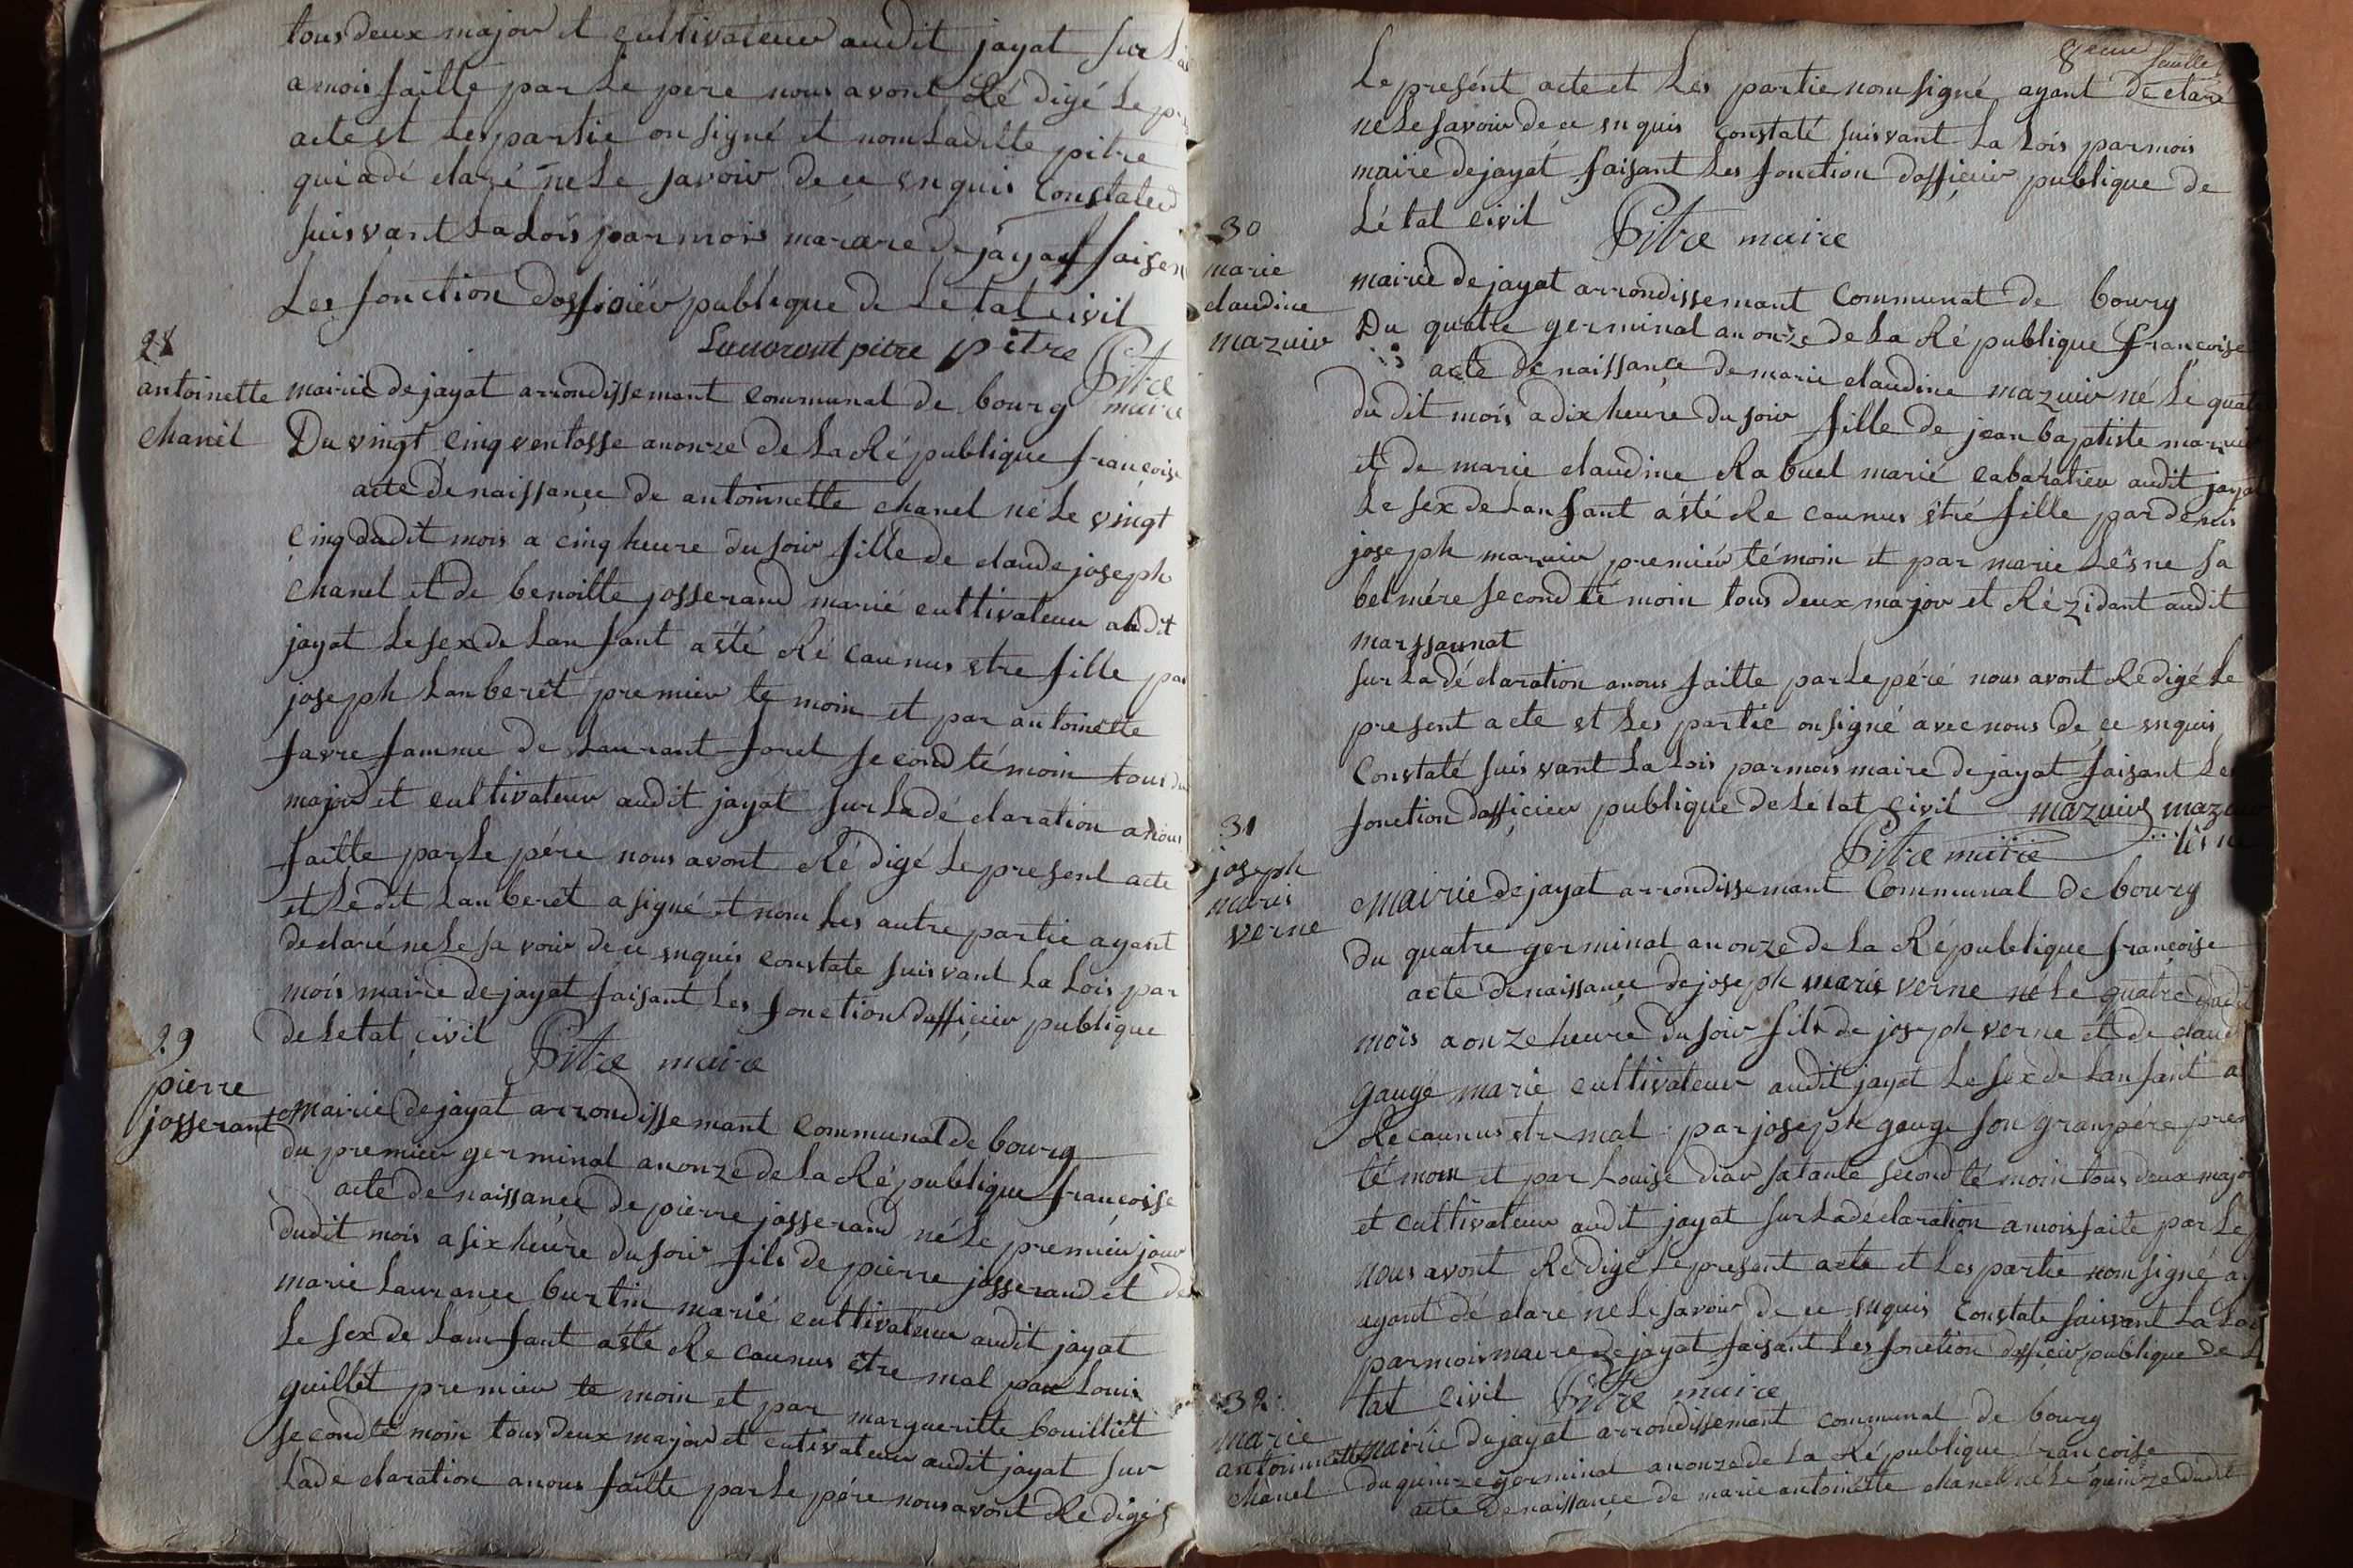 tous deux major et cultivateur audit jayat sur La
a mois faitte par Le pere nous avont Ré digé Le
acte et Les partie on signé et nom Laditte pitre
qui a dé claré ne Le savoir de ce en quis Constated
suis vant La Lois par mois marare de jayat faisen
Les fonction dofficiér publique de Le tat civil
Lauorant pitre pitre Pitre maire
28
antoinette
chanel
mairie de jayat arrondissement communal de bourg
Du vingt cinq ventosse an onze de La Ré publique françoise
acte de naissance de antoinnette chanel né Le vingt
Cinq dudit mois a cinq heure du soir fille de claude joseph
chanel et de benoitte josserand marié cultivateur audit
jayat Le sex de Lan fant a été Ré caunus etre fille par
joseph Lanberet premier te moin et par antoinette
favre famme de Laurant forel se cond témoin tous du
major et cultivateur audit jayat sur La dé claration a nous
faitte par Le pére nous avont Ré digé Le present acte
et Le dit Lanberet a signé et nom Les autre partie ayant
declaré ne Le sa voir de ce en quis constate suis vant La Lois par
mois maire de jayat faisant Les fonction dofficier publique
de Le tat civil Pitre maire
29
pierre
josserant
mairie de jayat arrondisse mant communal de bourg
du premier germinal an onze de La Ré publique françoise
acte de naissance de pierre josserand né Le premier jour
dudit mois a six heure du soir fils de pierre josserand et de
marie Laurance burtin marié cultivateur audit jayat
Le sex de Lan fant a été Re caunus être mal par Louis
guillet premier te moin et par margueritte bouilliet
se cond te moin tous deux major et cutivateur audit jayat sur
La de claration a nous faitte par Le pére nous avont Re digé
8eme feuille
Le présent acte et Les partie nom signé ayant declaré
ne Le savoir de ce en quis constaté suis vant La Lois par mois
maire de jayat faisant Les fonction dofficier publique de
Lé tat civil Pitre maire
30
marie
claudine
mazuir
mairie de jayat arrondissemant communal de bourg
Du quatre germinal an onze de La Ré publique françoise
acte de naissance de marie claudine mazuir né Le quatre
du dit mois a dix heure du soir fille de jean baptiste mazuir
et de marie claudine Rabuel marié cabarätier audit jayat
Le sex de Lan fant a été Re caunus étré fille par denis
joseph mazuir premiér témoin et par marie Lésne sa
bel mére second té moin tous deux major et Rézidant audit
marssaunat
sur La dé claration a nous faitte par Le péré nous avont Redigé Le
present acte et Les partie on signé avec nous de ce en quis
Constaté suis vant La Lois par mois maire de jayat faisant Les
fonction dofficier publique de Lé tat civil mazuir mazuir
Pitre maire Lésne
31
joseph
marie
verne
mairie de jayat arrondissemant Communal de bourg
du quatre germinal an onze de La République françoise
acte de naissance de joseph marie verne né Le quatre dudit
mois a onze heure du soir fils de joseph verne et de claud
gauge marié cultivateur audit jayat Le sex de Lan fant a
Re caunus etre mal par joseph gauge son granpére prem
té moin et par Louise diar sa tante second té moin tous deux major
et cultivateur audit jayat sur La déclaration a mois faite par Le
nous avont Redigé Le present acte et Les partie nom signé ay
ayant dé claré ne Le savoir de ce en quis Constate suis vant La Lois
par mois maire de jayat faisant Les fonction dofficier publique de L
tat civil Pitre maire
32
marie
antoinette
chanel
mairie de jayat arrondissemant communal de bourg
du quinze germinal an onze de La Ré publique françoise
acte de naissance de marie antoinette chanel né Le quinze dudit